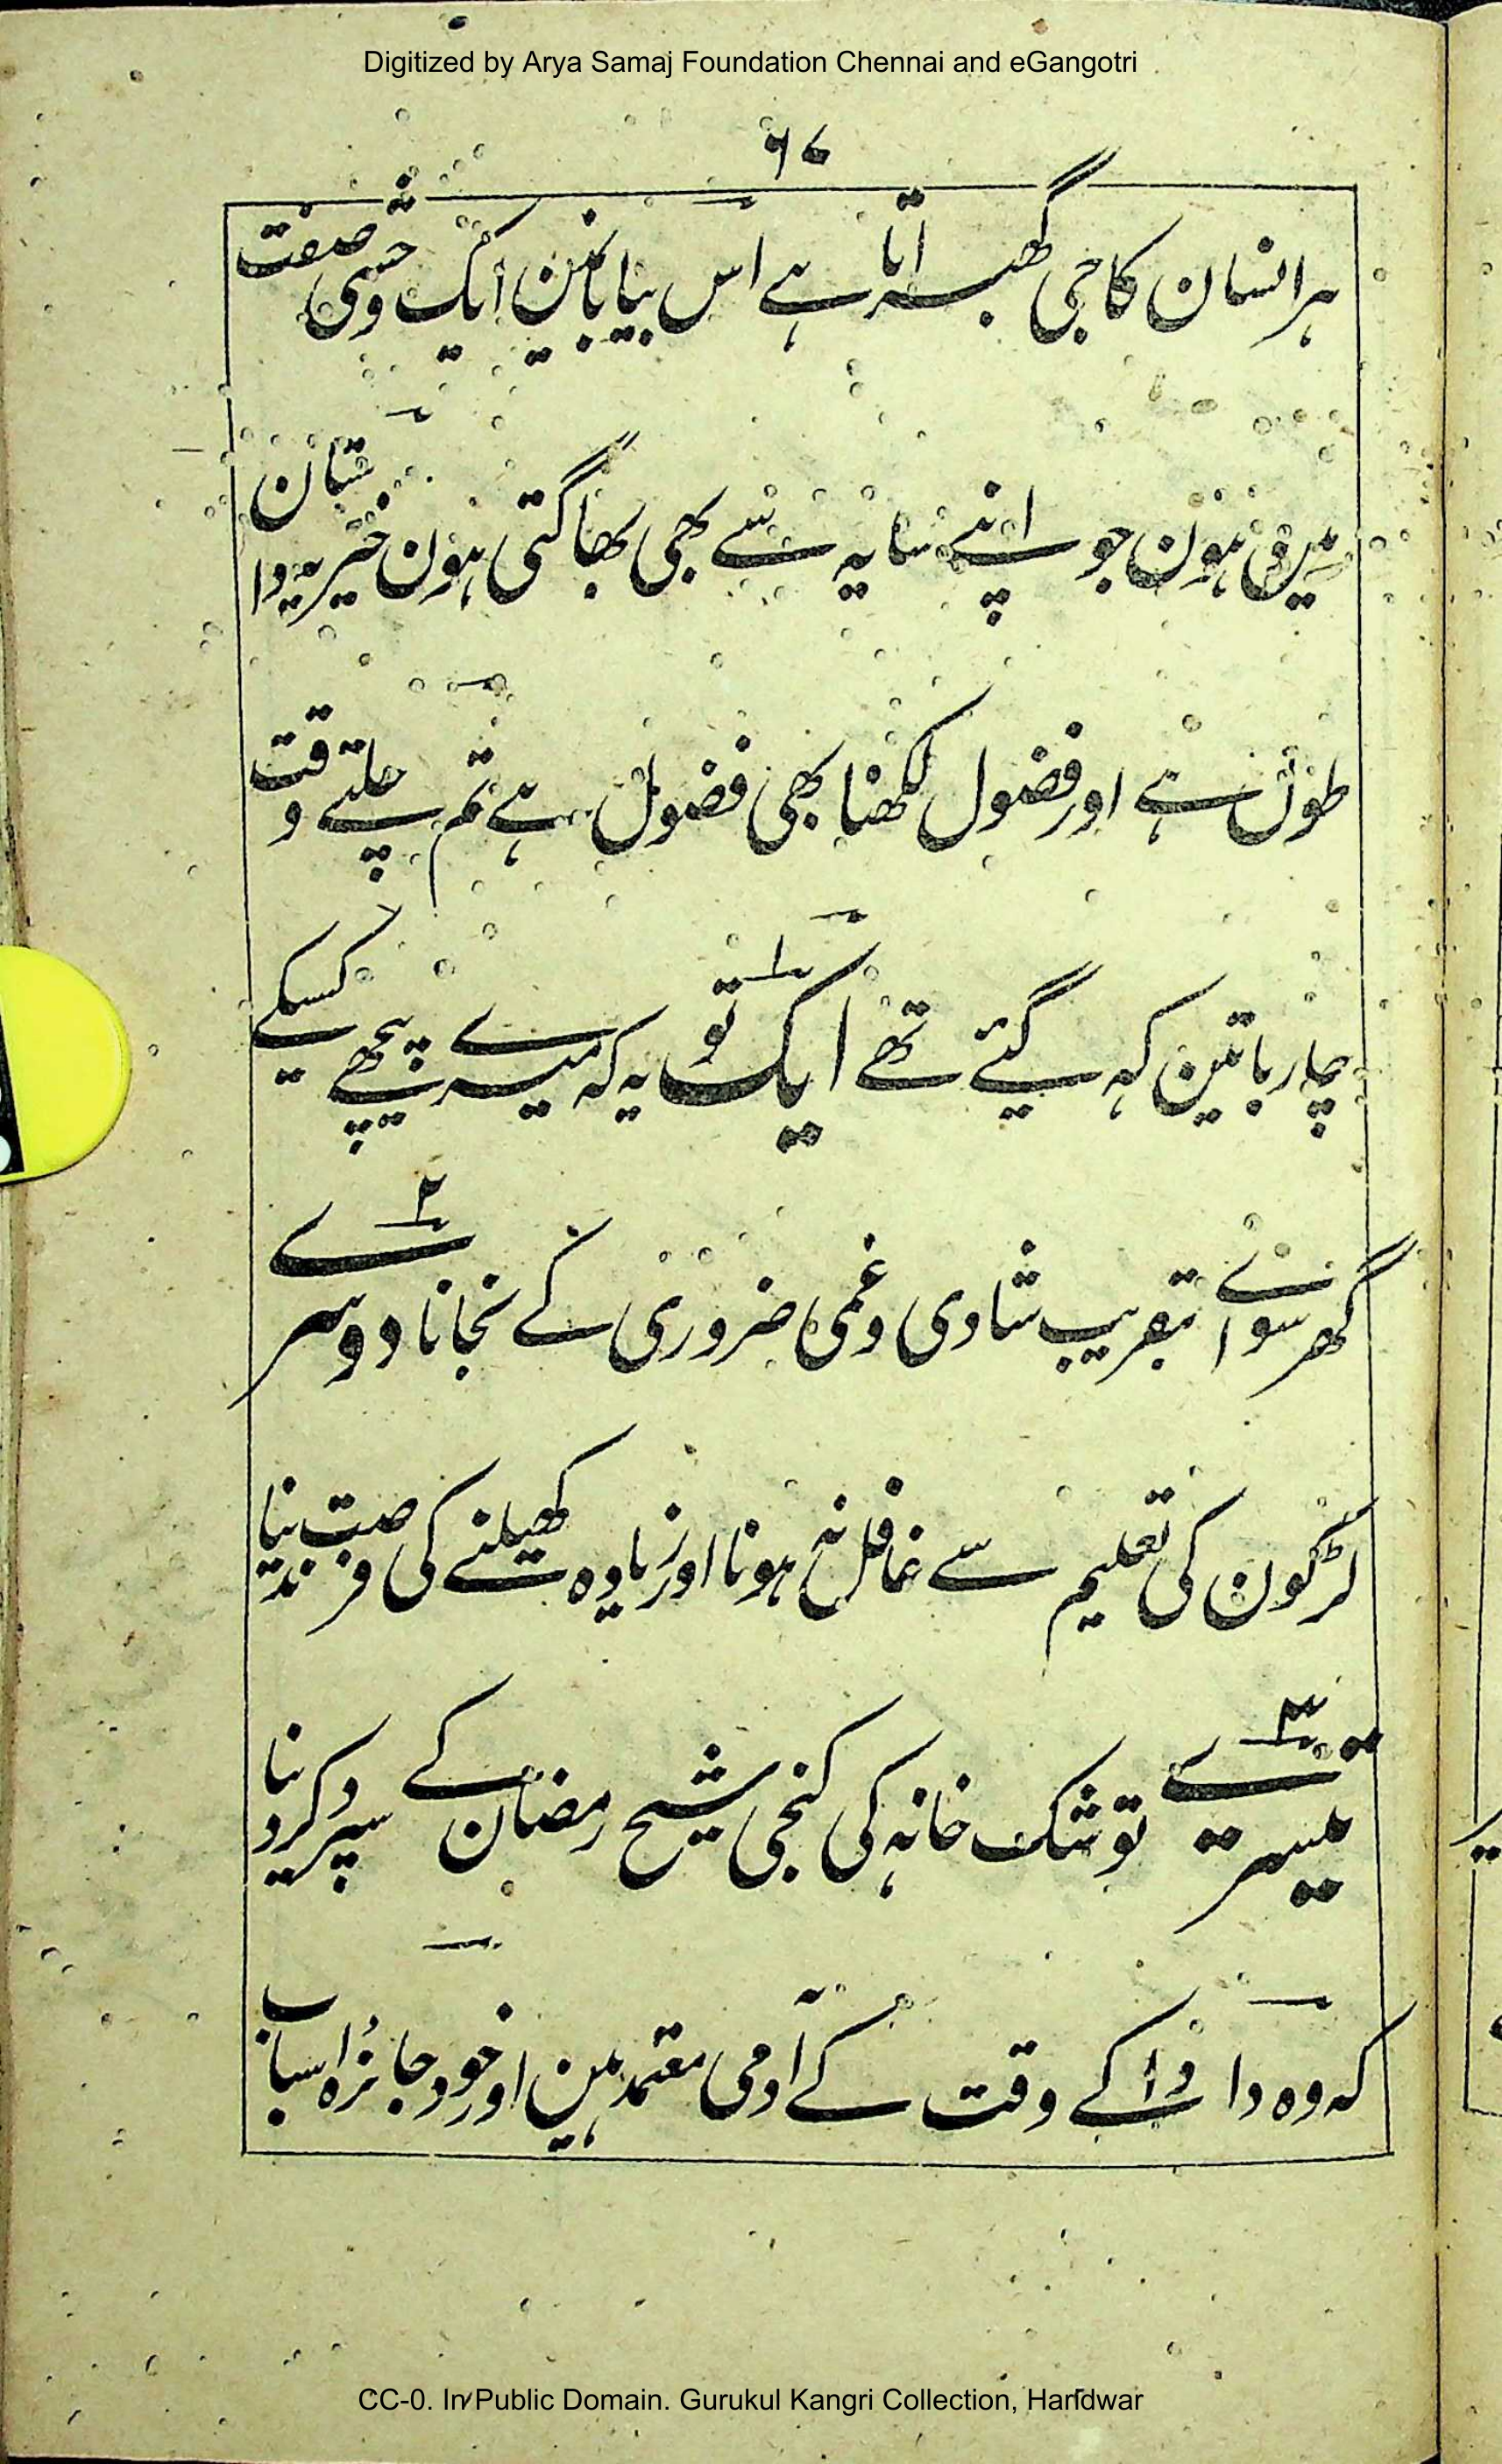 Digitized by Arya Samaj Foundation Chennai and eGangotri
۶۷
ہر انسان کا جی گھبراتا ہے اس بیابانمین ایک وحشی صفت
مین ہون جو اپنے سایہ سے بھی بھاگتی ہون خیر یہ داستان
طول ہے اور فضول لکھنا بھی فضول ہے تم چلتے وقت
چار باتین کہ گیئے تھے ایک تو یہ کہ میرے پیچھے کسیکے
گھر سواے تبقریب شادی و غمی ضروری کے نجانا دوسرے
لڑکون کی تعلیم سے غافل نہ ہونا اور زیادہ کھیلنے کی فرصت ندینا
تیسرے توشک خانہ کی کنجی شیخ رمضان کے سپرد کردینا
کہ وہ دادا کے وقت کے آدمی معتمد ہین اور خود جائزہ اسباب
CC-0. In Public Domain. Gurukul Kangri Collection, Haridwar